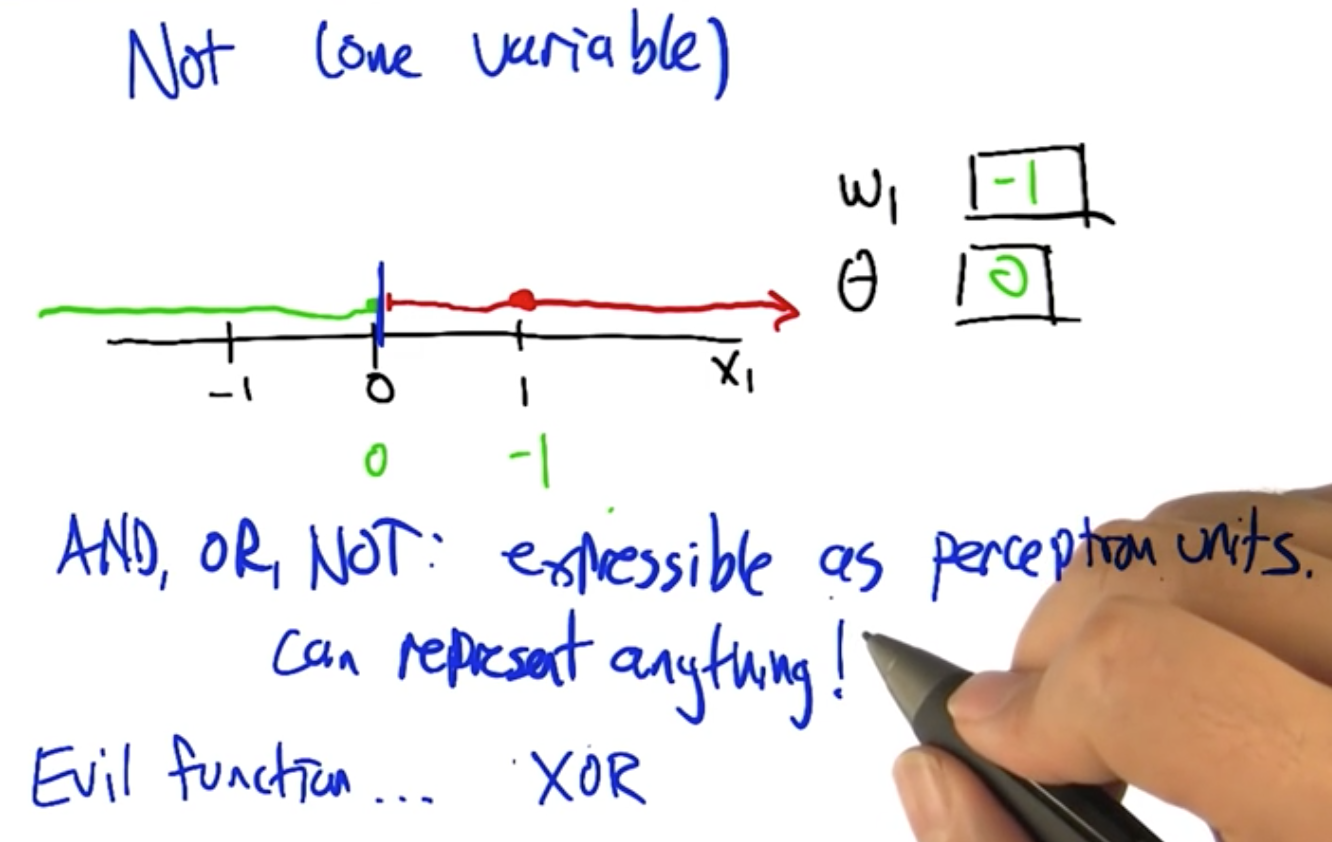 Not (one variable)
w₁ -1
θ 0
-1 0 1 x₁
0 -1
AND, OR, NOT: expressible as perceptron units.
can represent anything!
Evil function... XOR